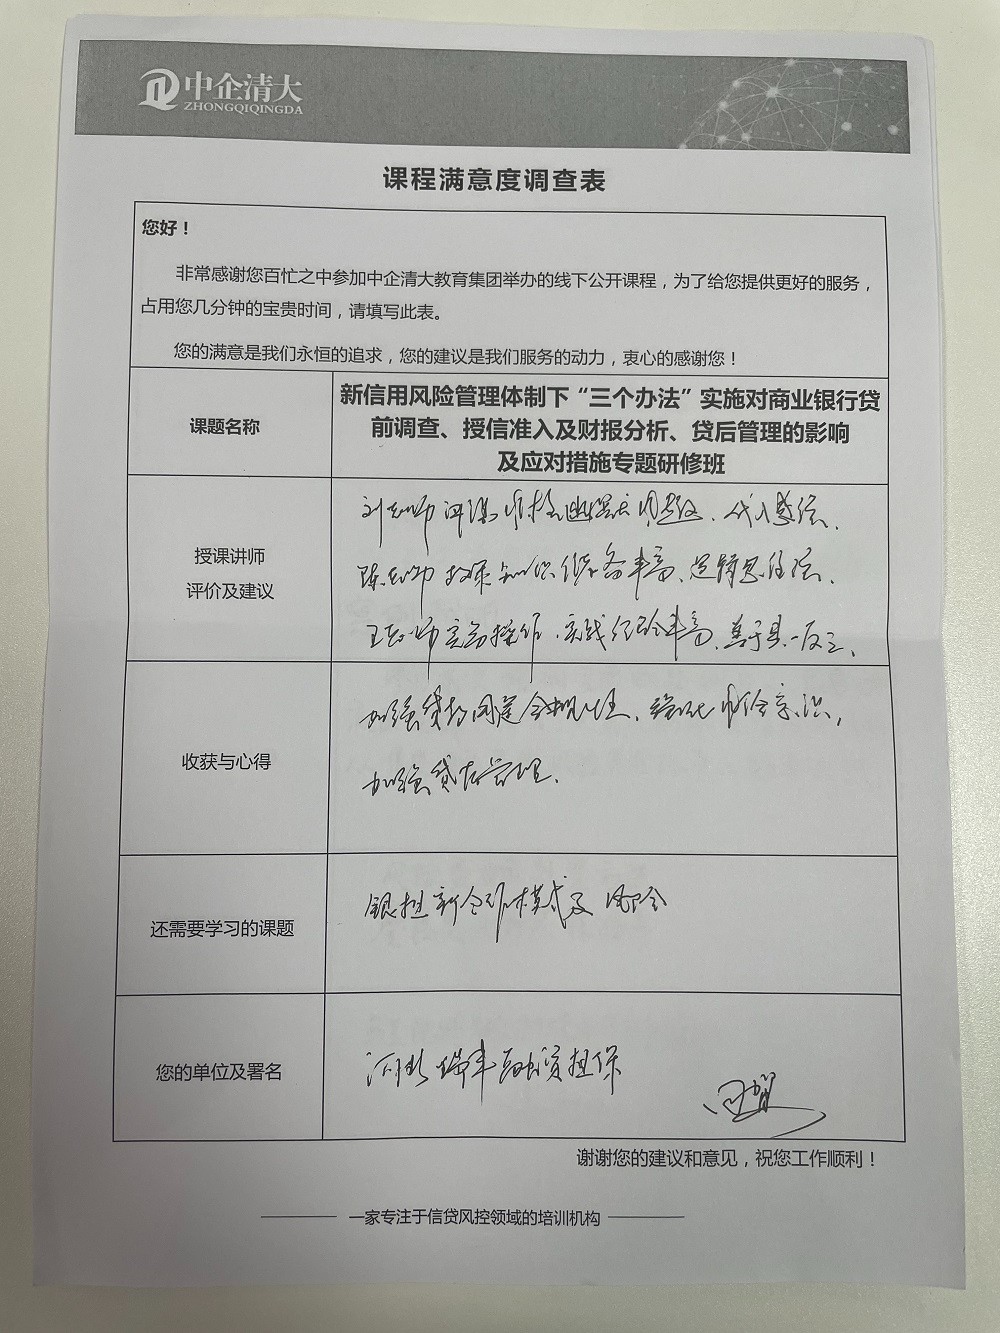 中企清大
ZHONGQIQINGDA
课程满意度调查表
您好！
非常感谢您百忙之中参加中企清大教育集团举办的线下公开课程，为了给您提供更好的服务，
占用您几分钟的宝贵时间，请填写此表。
您的满意是我们永恒的追求，您的建议是我们服务的动力，衷心的感谢您！
课题名称
新信用风险管理体制下“三个办法”实施对商业银行贷
前调查、授信准入及财报分析、贷后管理的影响
及应对措施专题研修班
授课讲师
评价及建议
刘老师讲课风格幽默风趣、代入感强、
陈老师授课知识储备丰富、逻辑思维强、
王老师实务操作、实践经验丰富、善于举一反三、
收获与心得
加强贷款用途合规性、强化风险意识，
加强贷后管理.
还需要学习的课题
银担新合作模式及风险
您的单位及署名
河北瑞丰融资担保
谢谢您的建议和意见，祝您工作顺利！
一家专注于信贷风控领域的培训机构